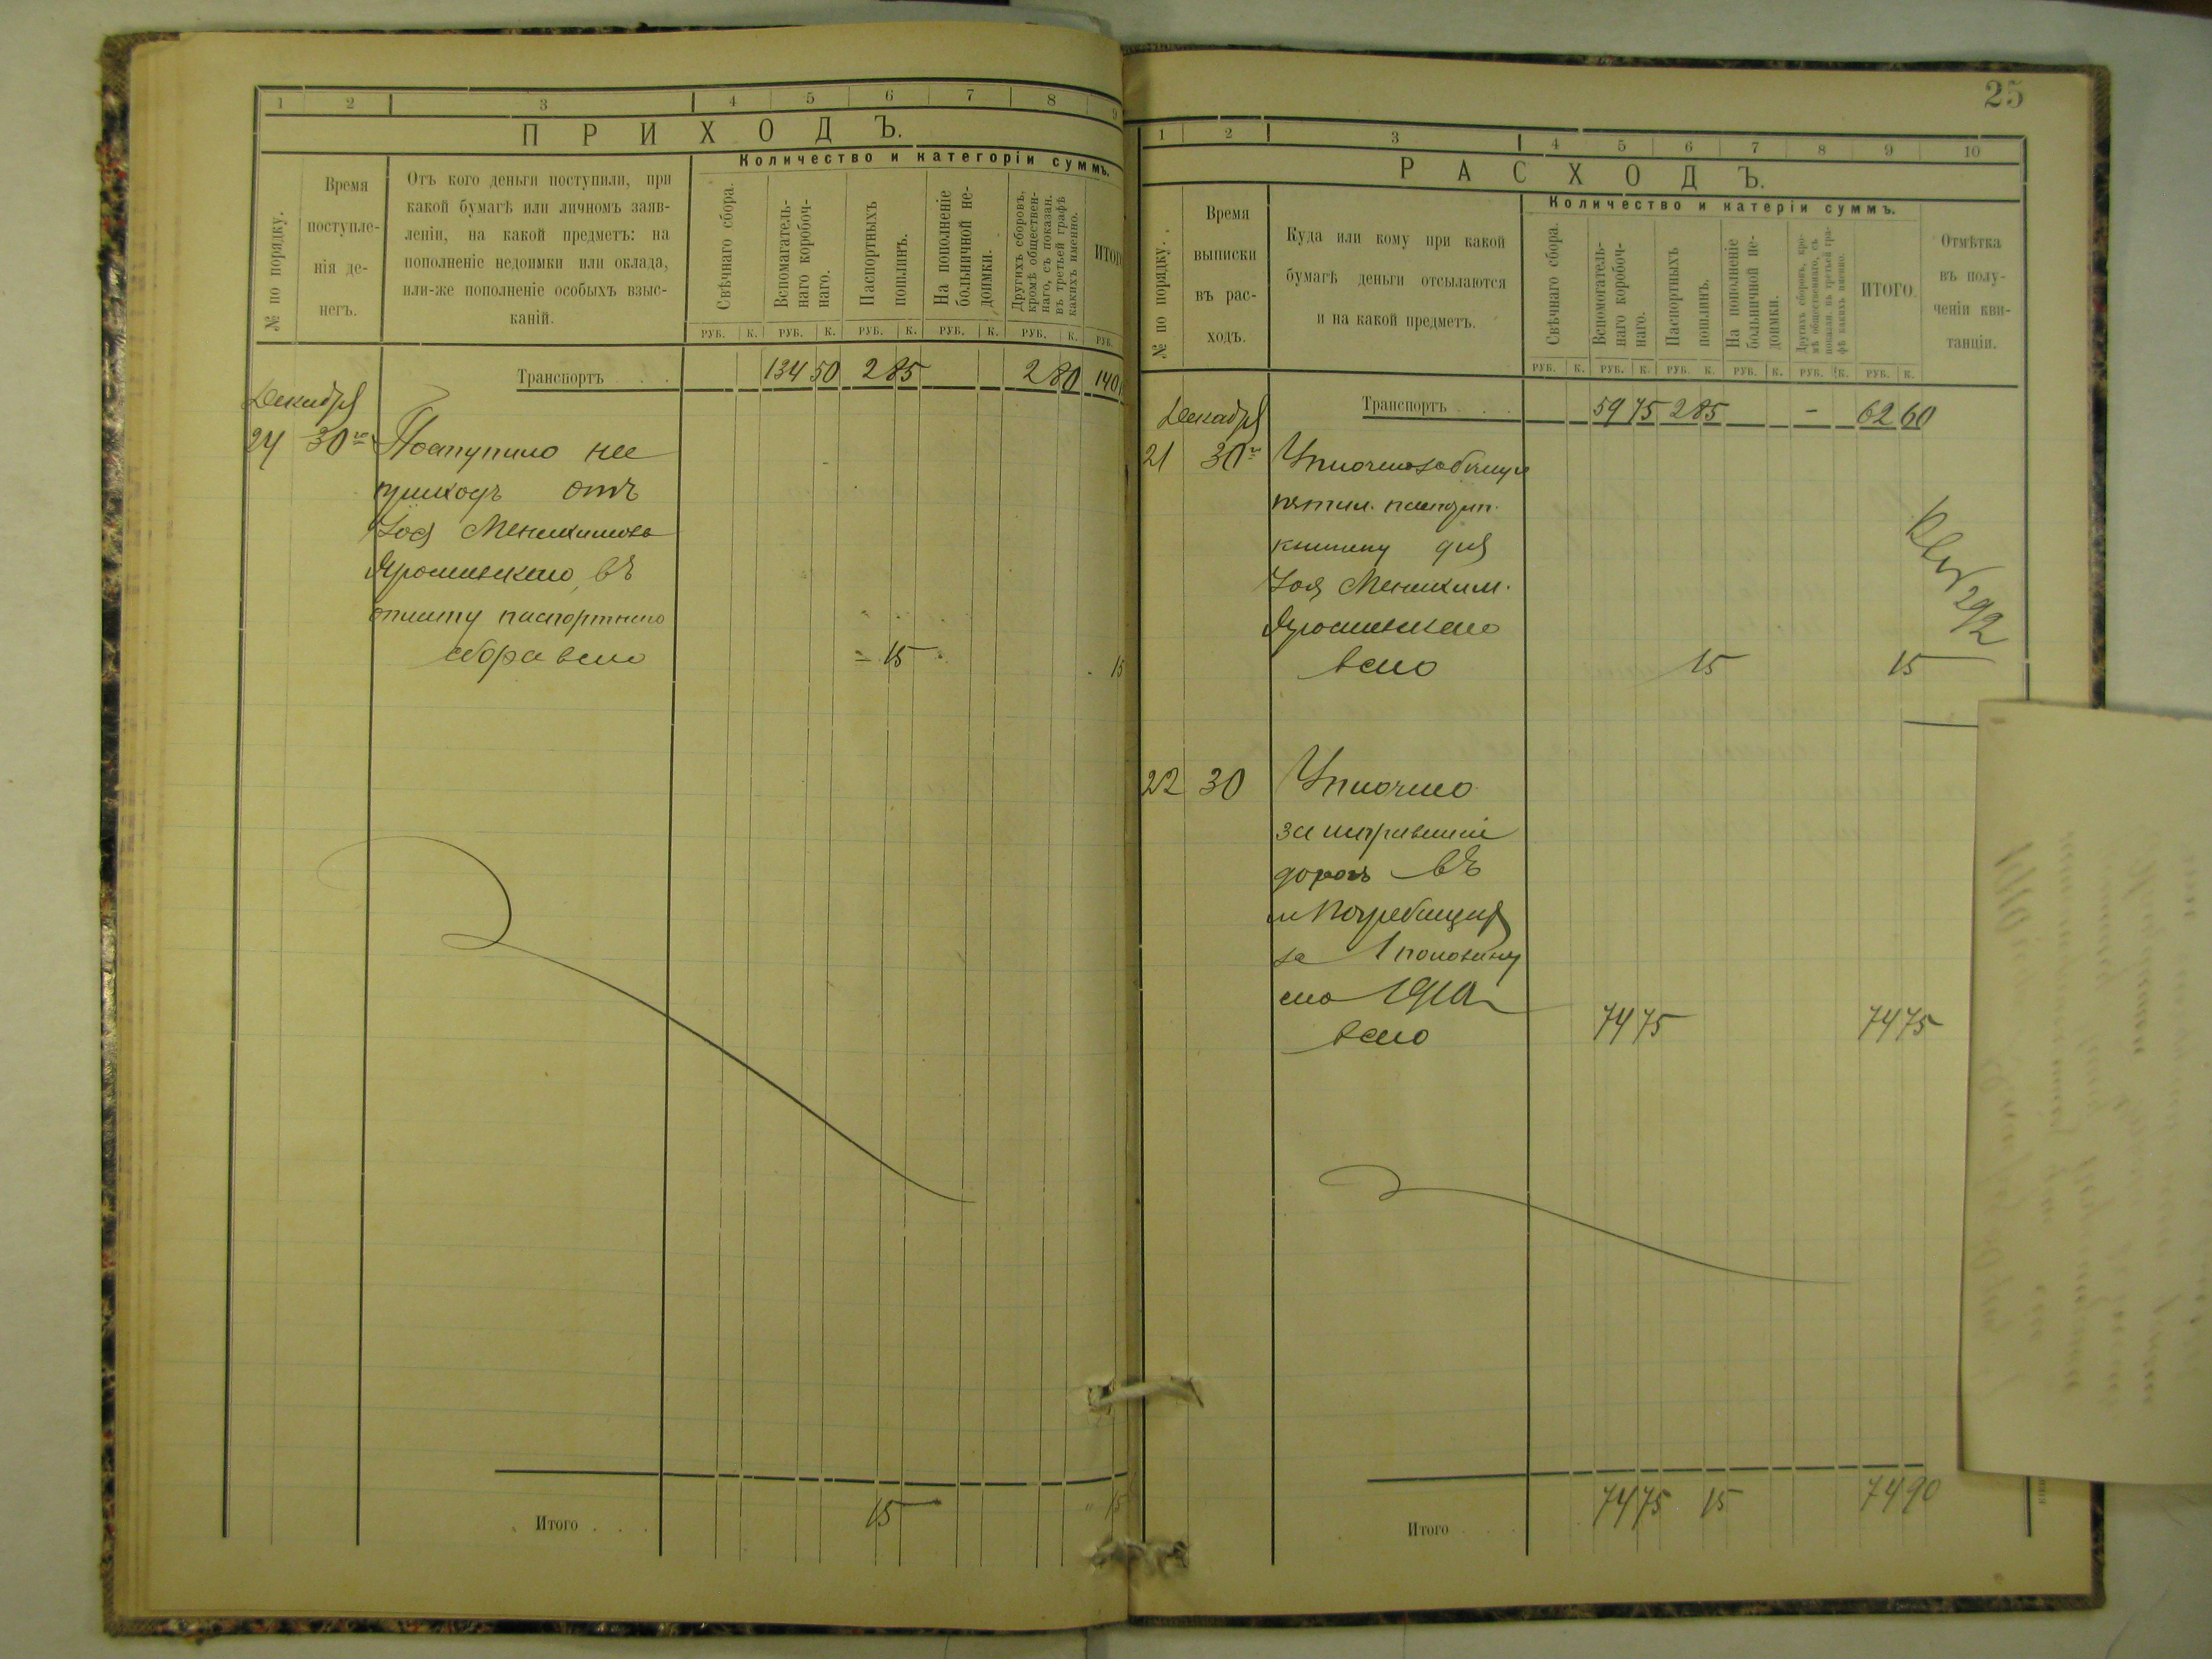 1 2 3 4 5 6 7 8 9
ПРИХОДЪ.
№ по порядку.
Время поступле-
нія де-
негъ.
Отъ кого деньги поступили, при
какой бумагѣ или личномъ заяв-
леніи, на какой предметъ: на
пополненіе недоимки или оклада,
или-же пополненіе особыхъ взыс-
каній.
Количество и категоріи суммъ.
Свѣчнаго сбора.
Вспомагатель-
наго коробоч-
наго.
Паспортныхъ
пошлинъ.
На пополненіе
больничной не-
доимки.
Другихъ сборовъ,
кромѣ обществен-
наго, съ показан.
въ третьей графѣ
какихъ именно.
ИТОГО
РУБ. К. РУБ. К. РУБ. К. РУБ. К. РУБ. К. РУБ.
Транспортъ . . 134 50 2 85 2 80 140
Декабря
24 30го Поступило на
приходъ отъ
Менашимова
въ
уплату паспортнаго
сбора всего 15 15
Итого . . . 15 15
25
1 2 3 4 5 6 7 8 9 10
РАСХОДЪ.
№ по порядку.
Время
выписки
въ рас-
ходъ.
Куда или кому при какой
бумагѣ деньги отсылаются
и на какой предметъ.
Количество и катеріи суммъ.
Свѣчнаго сбора.
Вспомогатель-
наго коробоч-
наго.
Паспортныхъ
пошлинъ.
На пополненіе
больничной не-
доимки.
Другихъ сборовъ, кро-
мѣ общественнаго, съ
показан. въ третьей гра-
фѣ какихъ именно.
ИТОГО.
Отмѣтка
въ полу-
ченіи кви-
танціи.
РУБ. К. РУБ. К. РУБ. К. РУБ. К. РУБ. К. РУБ. К.
Транспортъ . . . 59 75 2 85 - 62 60
Декабря
21 30го Уплочено за
паспорт.
книжку для
всего 15 15
292
22 30 Уплочено
за исправленіе
дорогъ въ
м Погребищѣ
за 1 половину
1910
всего 74 75 74 75
Итого . . . 74 75 15 74 90